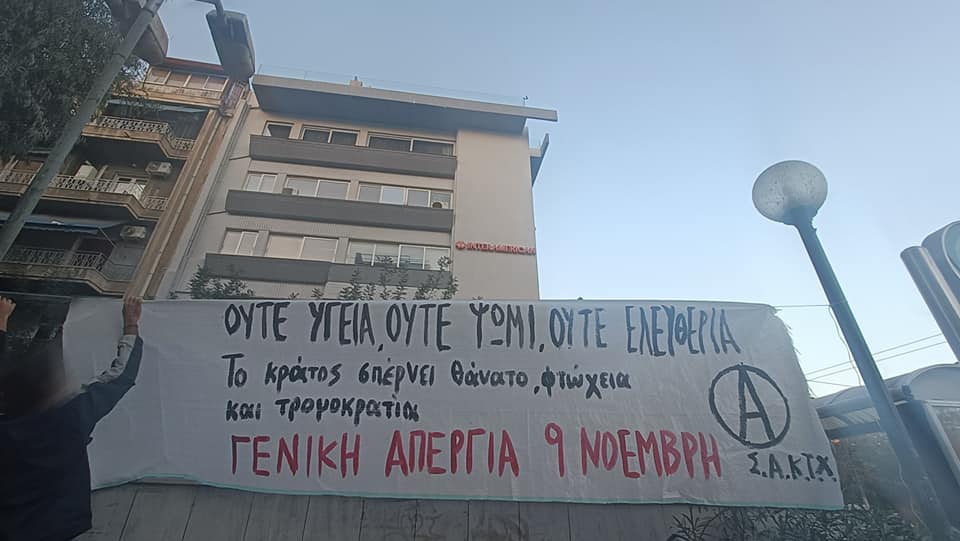 INTERAMERICAN
ΟΥΤΕ ΥΓΕΙΑ, ΟΥΤΕ ΨΩΜΙ, ΟΥΤΕ ΕΛΕΥΘΕΡΙΑ
Το κράτος σπέρνει θάνατο, φτώχεια
και τρομοκρατία
ΓΕΝΙΚΗ ΑΠΕΡΓΙΑ 9 ΝΟΕΜΒΡΗ
Α
Σ.Α.Κ.Τ.Χ.